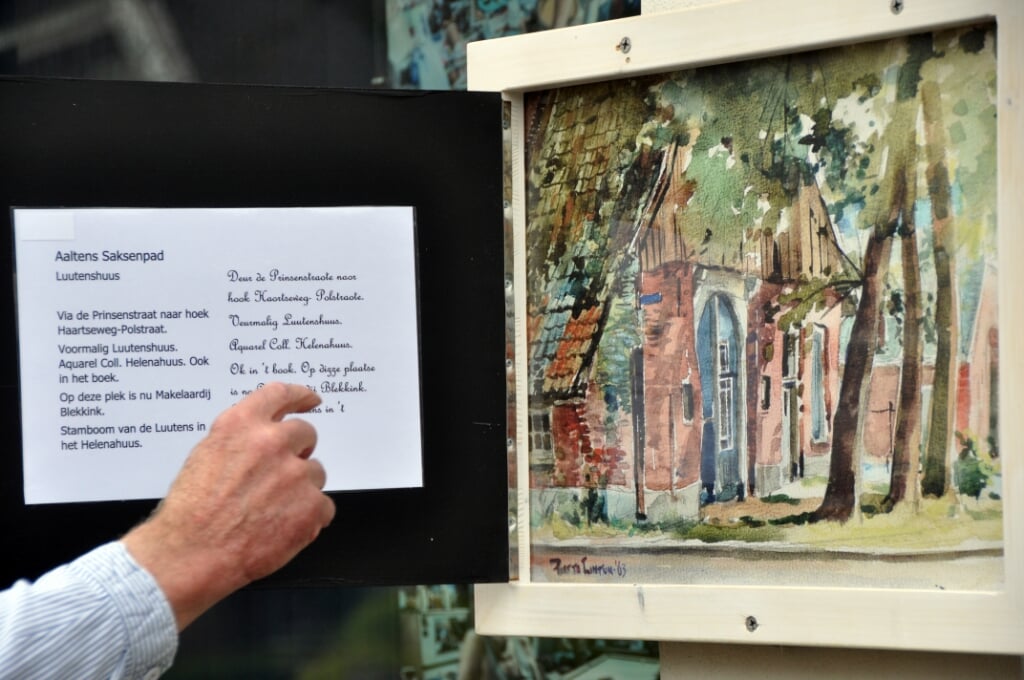 Aaltens Saksenpad
Luutenshuus
Via de Prinsenstraat naar hoek
Haartseweg-Polstraat.
Voormalig Luutenshuus.
Aquarel Coll. Helenahuus. Ook
in het boek.
Op deze plek is nu Makelaardij
Blekkink.
Stamboom van de Luutens in
het Helenahuus.
Deur de Prinsenstraote naor
hook Haartseweg- Polstraote.
Veurmalig Luutenshuus.
Aquarel Coll. Helenahuus.
Ok in 't book. Op dizze plaatse
is no Blekkink.
in 't